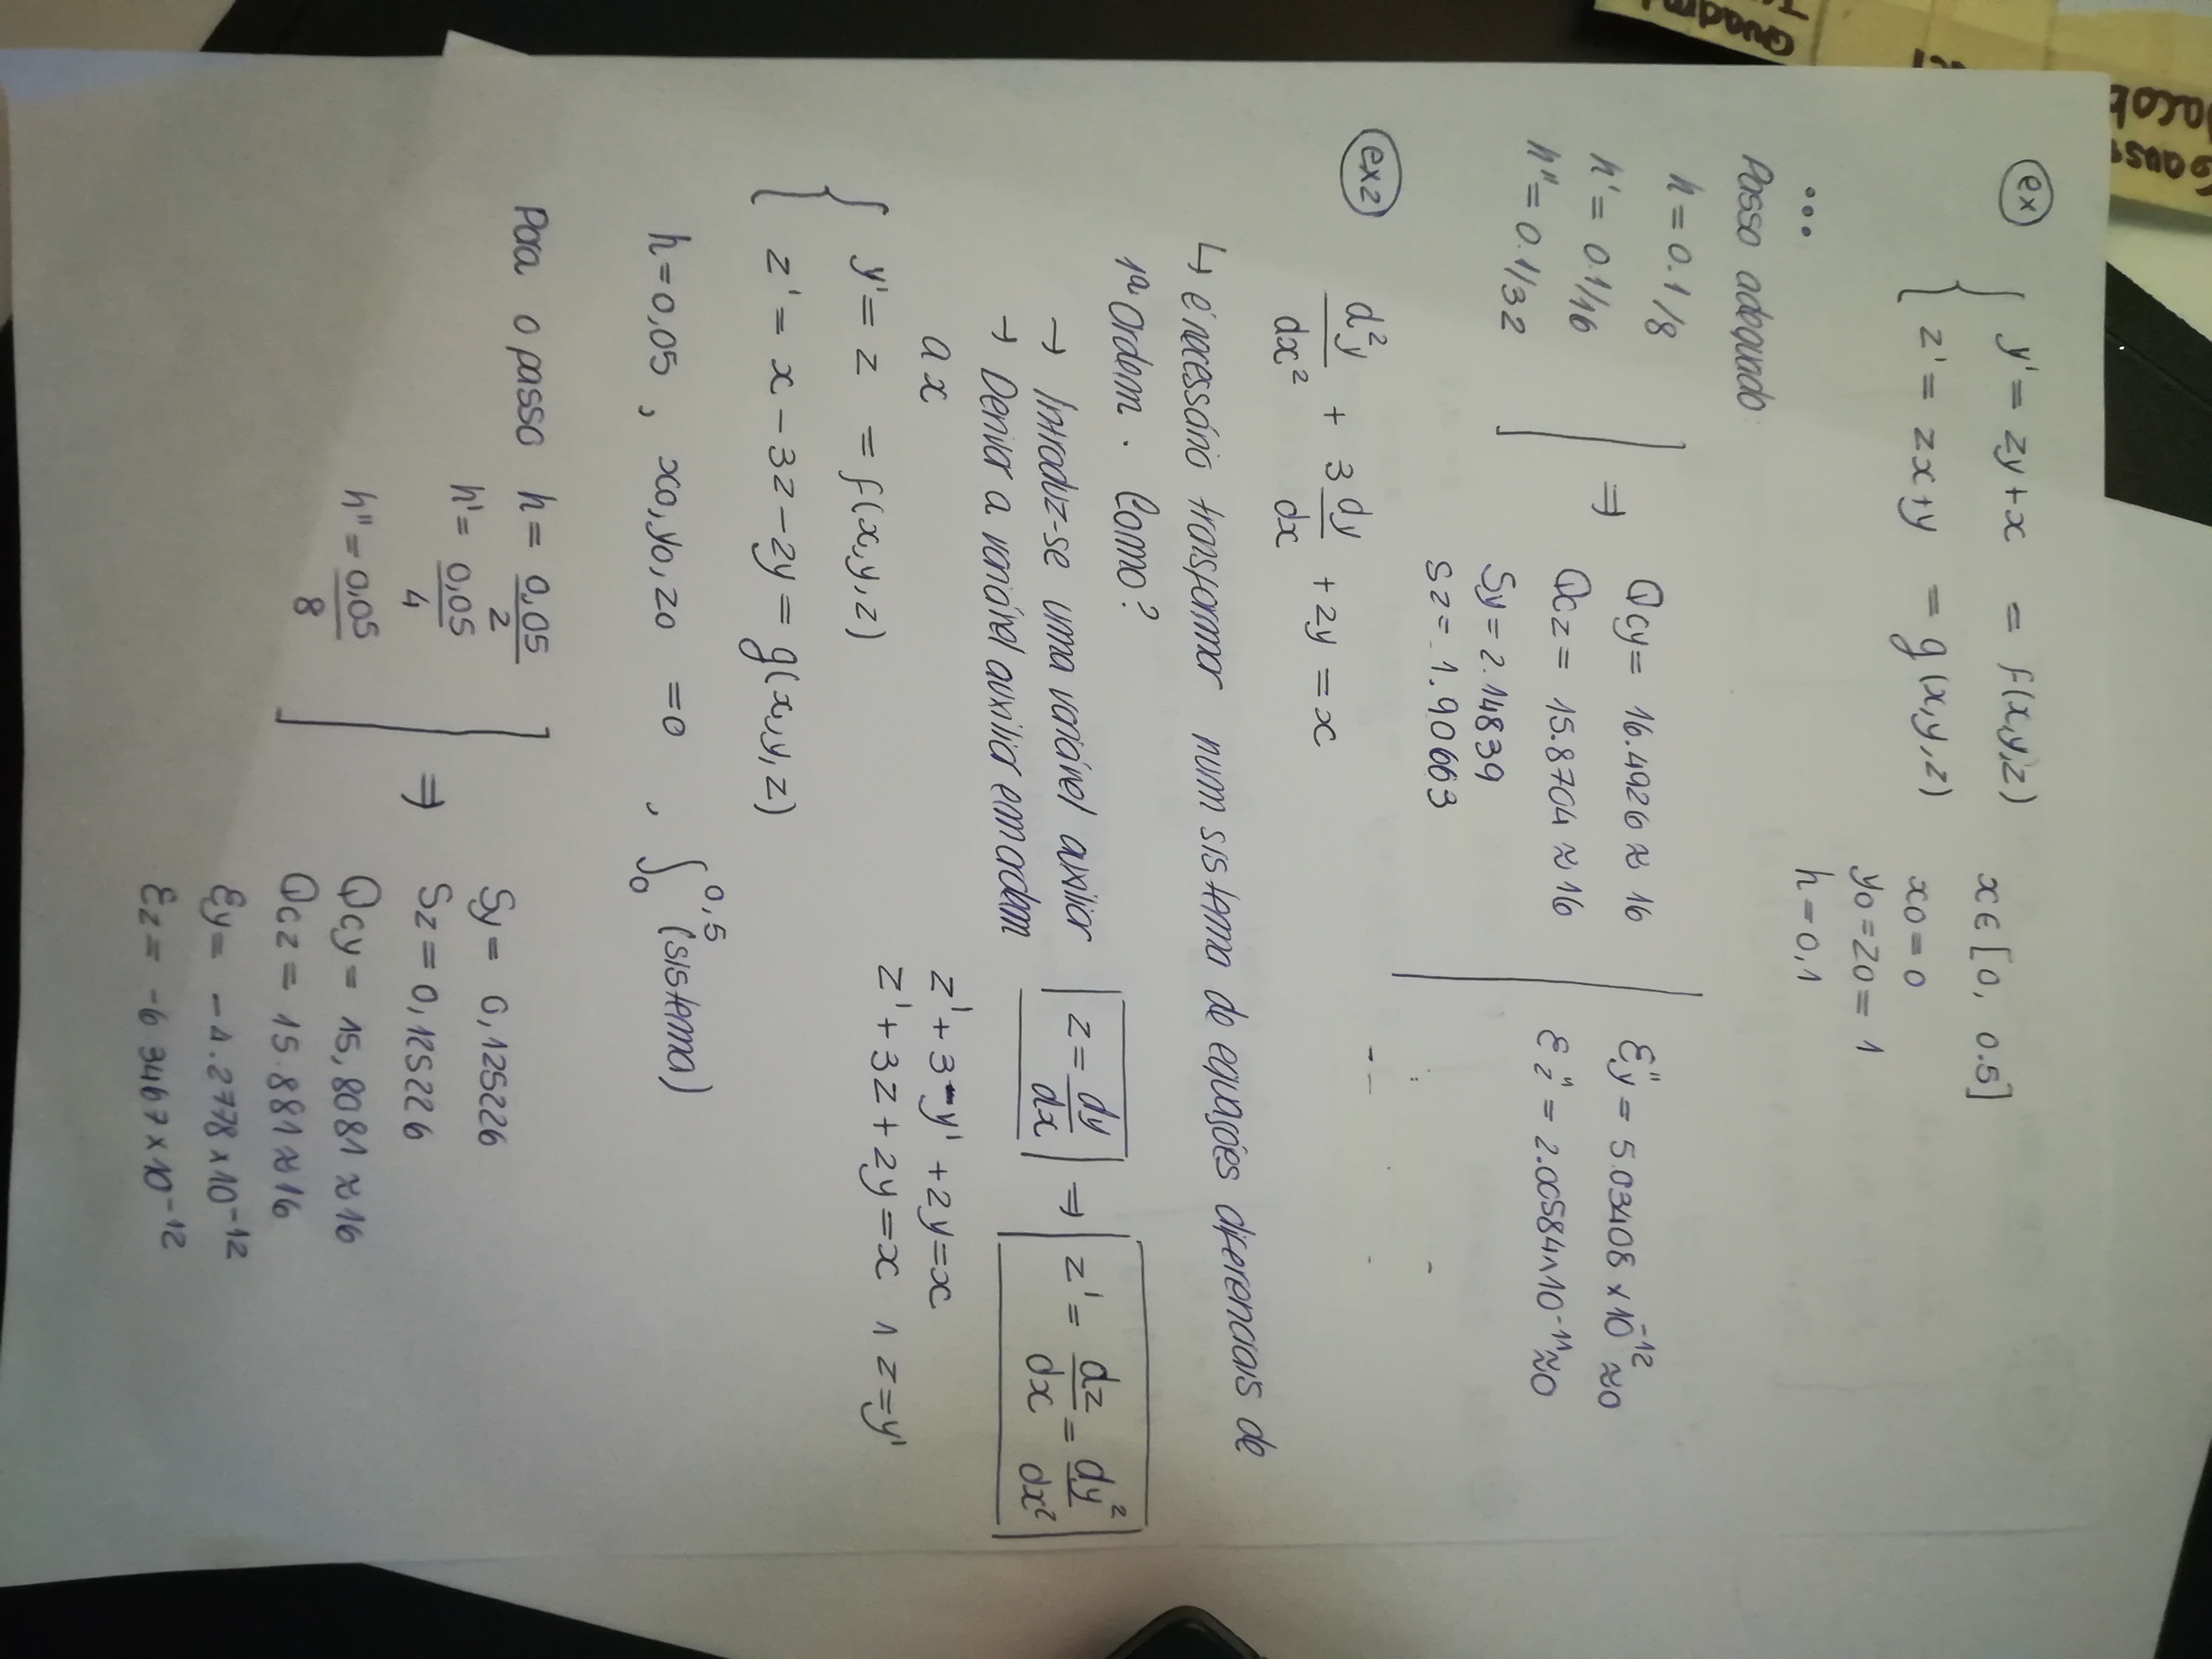 Gauss
Jacob
Quadra
ex
y' = zy+x = f(x,y,z)
z' = zx+y = g(x,y,z)
x ∈ [0, 0.5]
x0 = 0
y0 = z0 = 1
h = 0,1
...
Passo adequado
h = 0.1/8
h' = 0.1/16
h'' = 0.1/32
⇒
Qcy = 16.4926 ≈ 16
Qcz = 15.8704 ≈ 16
Sy = 2.14839
Sz = 1.90663
Ɛ''y = 5.03408 x 10^-12 ≈ 0
Ɛz'' = 2.00584 x 10^-11 ≈ 0
ex2
d²y/dx² + 3 dy/dx + 2y = x
↳ é necessário transformar num sistema de equações diferenciais de
1ª Ordem. Como?
→ Introduz-se uma variável auxiliar
z = dy/dx ⇒ z' = dz/dx = dy²/dx²
→ Derivar a variável auxiliar em ordem
a x
z' + 3 y' + 2y = x
z' + 3z + 2y = x ∧ z = y'
y' = z = f(x,y,z)
z' = x - 3z - 2y = g(x,y,z)
h = 0,05 , x0, y0, z0 = 0 , ∫₀^0,5 (sistema)
Para o passo h = 0,05/2
h' = 0,05/4
h'' = 0,05/8
⇒
Sy = 0,125226
Sz = 0,125226
Qcy = 15,8081 ≈ 16
Qcz = 15.881 ≈ 16
Ɛy = -4.2778 x 10^-12
Ɛz = -6 3467 x 10^-12